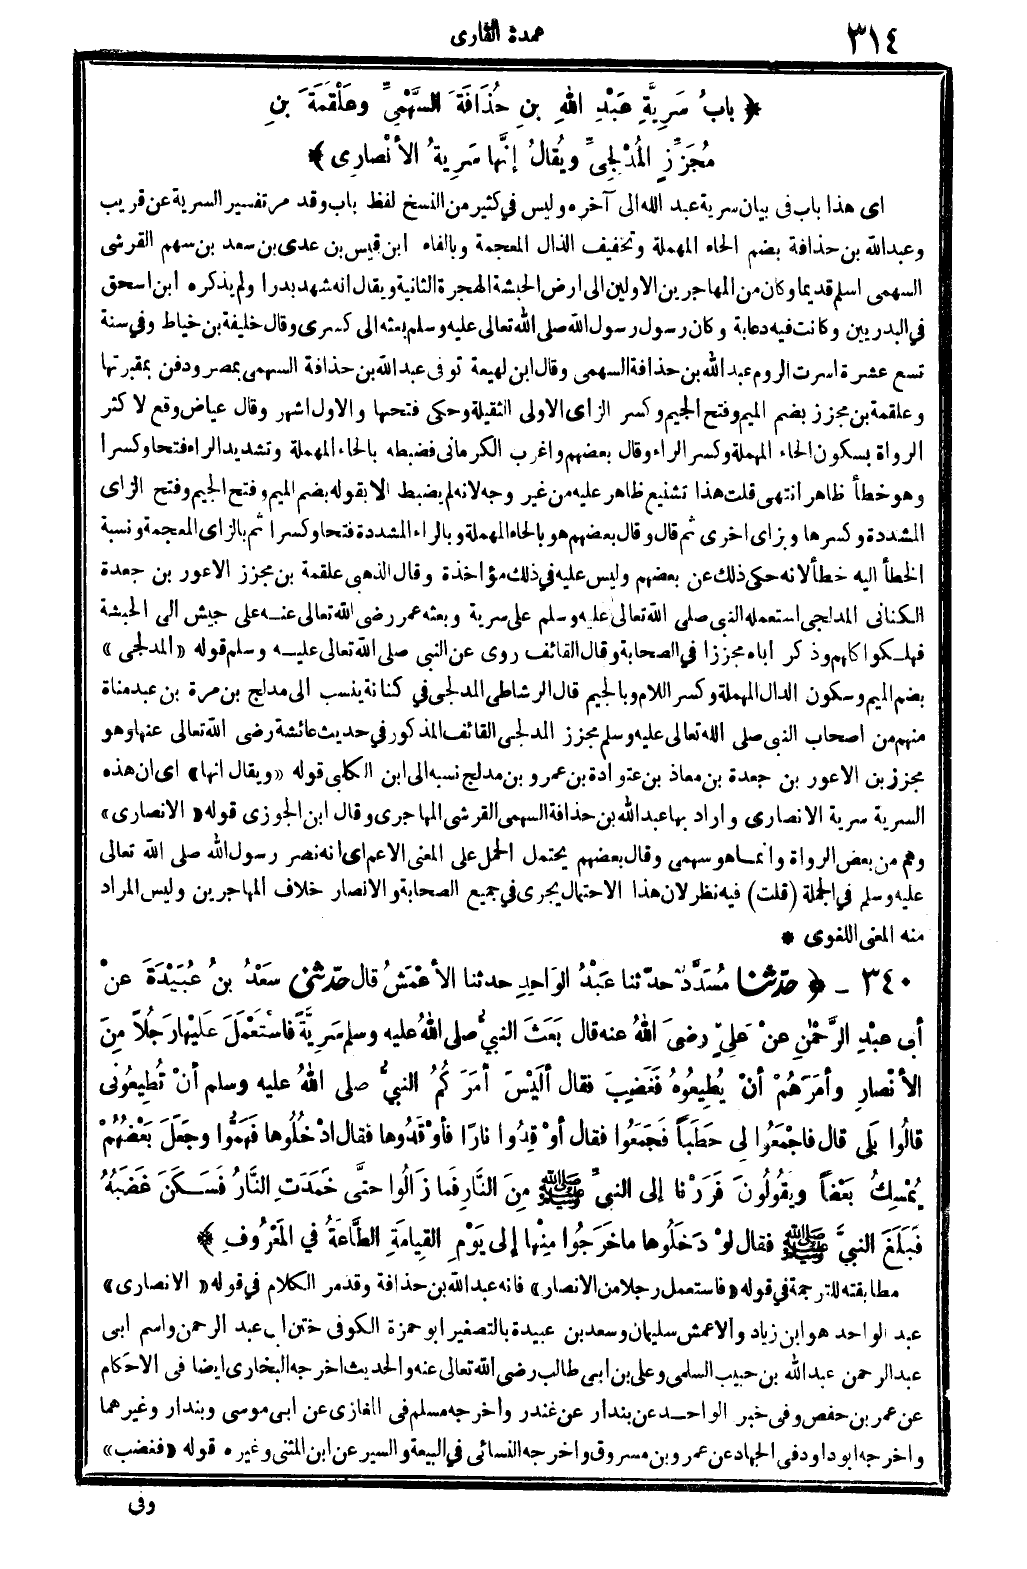 عمدة القارى ٣١٤
﴿ بابُ سَرِيَّةِ عَبْدِ اللهِ بنِ حُذَافَةَ السَّهْمِيِّ وعَلْقَمَةَ بنِ
مُجَزِّزٍ المُدْلِجِيِّ ويُقالُ إنَّها سَرِيةُ الأنْصارِى ﴾
اى هذا باب فى بيان سرية عبد الله الى آخره وليس في كثير من النسخ لفظ باب وقد مر تفسير السرية عن قريب
وعبدالله بن حذافة بضم الحاء المهملة وتخفيف الذال المعجمة وبالفاء ابن قيس بن عدى بن سعد بن سهم القرشى
السهمى اسلم قديما وكان من المهاجرين الاولين الى ارض الحبشة الهجرة الثانية ويقال انه شهد بدرا ولم يذكره ابن اسحق
في البدريين وكانت فيه دعابة وكان رسول رسول الله صلى الله تعالى عليه وسلم بعثه الى كسرى وقال خليفة بن خياط وفي سنة
تسع عشرة اسرت الروم عبد الله بن حذافة السهمى وقال ابن لهيعة توفى عبد الله بن حذافة السهمى بمصر ودفن بمقبرتها
وعلقمة بن مجزز بضم الميم وفتح الجيم وكسر الزاى الاولى الثقيلة وحكى فتحها والاول اشهر وقال عياض وقع لا كثر
الرواة بسكون الحاء المهملة وكسر الراء وقال بعضهم واغرب الكرمانى فضبطه بالحاء المهملة وتشديد الراء فتحا وكسرا
وهو خطأ ظاهر انتهى قلت هذا تشنيع ظاهر عليه من غير وجه لانه لم يضبط الا بقوله بضم الميم وفتح الجيم وفتح الزاى
المشددة وكسرها وبزاى اخرى ثم قال وقال بعضهم هو بالحاء المهملة وبالراء المشددة فتحا وكسرا ثم بالزاى المعجمة ونسبة
الخطأ اليه خطأ لانه حكى ذلك عن بعضهم وليس عليه في ذلك مؤاخذة وقال الذهبى علقمة بن مجزز الاعور بن جعدة
الكنانى المدلجى استعمله النبى صلى الله تعالى عليه وسلم على سرية وبعثه عمر رضى الله تعالى عنه على جيش الى الحبشة
فهلكوا كلهم وذكر اباه مجززا في الصحابة وقال القائف روى عن النبي صلى الله تعالى عليه وسلم قوله «المدلجى»
بضم الميم وسكون الدال المهملة وكسر اللام وبالجيم قال الرشاطى المدلجى في كنانة ينسب الى مدلج بن مرة بن عبد مناة
منهم من اصحاب النبى صلى الله تعالى عليه وسلم مجزز المدلجى القائف المذكور في حديث عائشة رضى الله تعالى عنها وهو
مجزز بن الاعور بن جعدة بن معاذ بن عتوادة بن عمرو بن مدلج نسبه الى ابن الكلبى قوله «ويقال انها» اى ان هذه
السرية سرية الانصارى واراد بها عبد الله بن حذافة السهمى القرشى المهاجرى وقال ابن الجوزى قوله «الانصارى»
وهم من بعض الرواة وانما هو سهمى وقال بعضهم يحتمل الحمل على المعنى الاعم اى انه نصر رسول الله صلى الله تعالى
عليه وسلم في الجملة (قلت) فيه نظر لان هذا الاحتمال يجرى في جميع الصحابة والانصار خلاف المهاجرين وليس المراد
منه المعنى اللغوى *
٣٤٠ - ﴿ حدّثنا مُسَدَّدٌ حدّثنا عَبْدُ الوَاحِدِ حدثنا الأعْمَشُ قال حدّثنى سَعْدُ بنُ عُبَيْدَةَ عنْ
أبى عبْدِ الرَّحْمٰنِ عنْ عَلِيٍّ رضىَ اللهُ عنه قال بَعَثَ النبيُّ صلى اللهُ عليه وسلم سَرِيَّةً فاسْتَعْمَلَ عَلَيْهَا رَجُلاً مِنَ
الأنْصارِ وأمَرَهُمْ أنْ يُطِيعُوهُ فَغَضِبَ فقال ألَيْسَ أمَرَكُمُ النبيُّ صلى اللهُ عليه وسلم أنْ تُطِيعُونى
قالُوا بَلَى قال فاجْمَعُوا لِى حَطَباً فَجَمَعُوا فقال أوْقِدُوا نارًا فأوْقَدُوها فقال ادْخُلُوها فَهَمُّوا وجَعَلَ بَعْضُهُمْ
يُمْسِكُ بَعْضاً ويَقُولُونَ فَرَرْنا إلى النبيِّ ﷺ مِنَ النَّارِ فما زَالُوا حتَّى خَمَدَتِ النَّارُ فَسَكَنَ غَضَبُهُ
فَبَلَغَ النبيَّ ﷺ فقال لوْ دَخَلُوها ما خَرَجُوا مِنْها إلى يَوْمِ القِيامَةِ الطَّاعَةُ في المَعْرُوفِ ﴾
مطابقته للترجمة في قوله «فاستعمل رجلا من الانصار» فانه عبد الله بن حذافة وقد مر الكلام في قوله «الانصارى»
عبد الواحد هو ابن زياد والاعمش سليمان وسعد بن عبيدة بالتصغير ابو حمزة الكوفى ختن ابى عبد الرحمن واسم ابى
عبد الرحمن عبد الله بن حبيب السلمى وعلى بن ابى طالب رضى الله تعالى عنه والحديث اخرجه البخارى ايضا فى الاحكام
عن عمر بن حفص وفى خبر الواحد عن بندار عن غندر واخرجه مسلم فى المغازى عن ابى موسى وبندار وغيرهما
واخرجه ابو داود فى الجهاد عن عمرو بن مسروق واخرجه النسائى في البيعة والسير عن ابن المثنى وغيره قوله «فغضب»
وفى